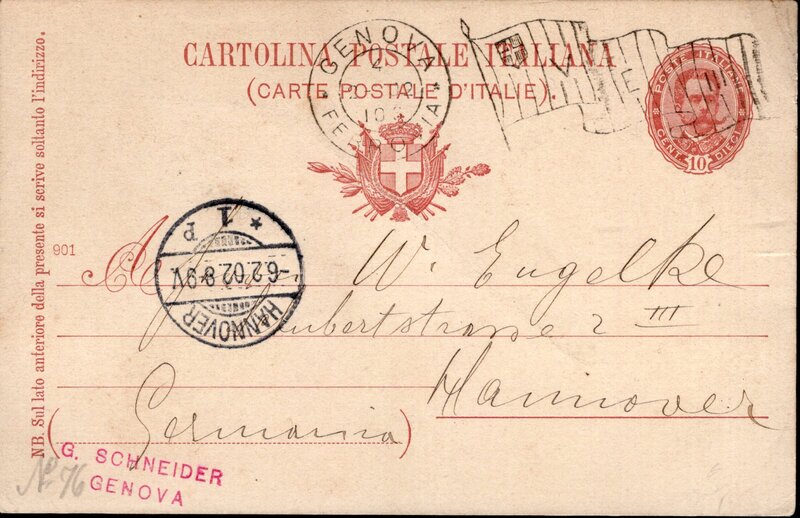 CARTOLINA POSTALE ITALIANA
(CARTE POSTALE D'ITALIE).
GENOVA
FERROVIA
V E III
POSTE ITALIANE
CENT. 10 DIECI
NB. Sul lato anteriore della presente si scrive soltanto l'indirizzo.
901
A
W. Engelke
2 III
Hannover
(Germania)
HANNOVER
-6.2.02.8-9V.
* 1 P
G. SCHNEIDER
GENOVA
No 76